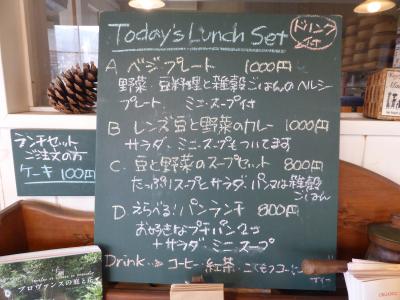 Today's Lunch Set
ドリンク
付
A ベジプレート 1000円
野菜・豆料理と雑穀ごはんのヘルシー
プレート ミニスープ付
B レンズ豆と野菜のカレー 1000円
サラダ、ミニスープもついてます
C. 豆と野菜のスープセット 800円
たっぷりスープとサラダ、パン又は雑穀
ごはん
D. えらべる!パンランチ 800円
お好きなプチパン2つ
+サラダ、ミニスープ
Drink コーヒー・紅茶
ティー
ランチセット
ご注文の方
ケーキ 100円
プロヴァンスの庭と花